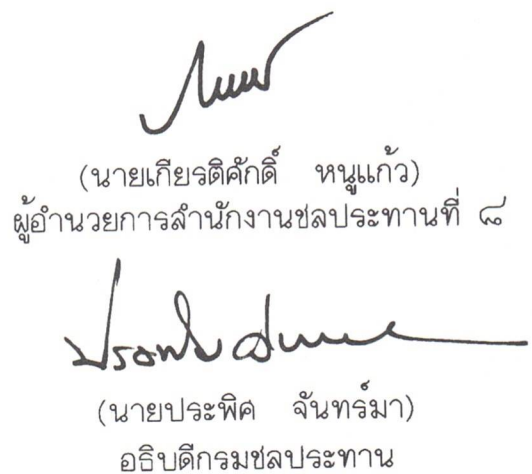 (นายเกียรติศักดิ์ หนูแก้ว)
ผู้อำนวยการสำนักงานชลประทานที่ ๘
(นายประพิศ จันทร์มา)
อธิบดีกรมชลประทาน